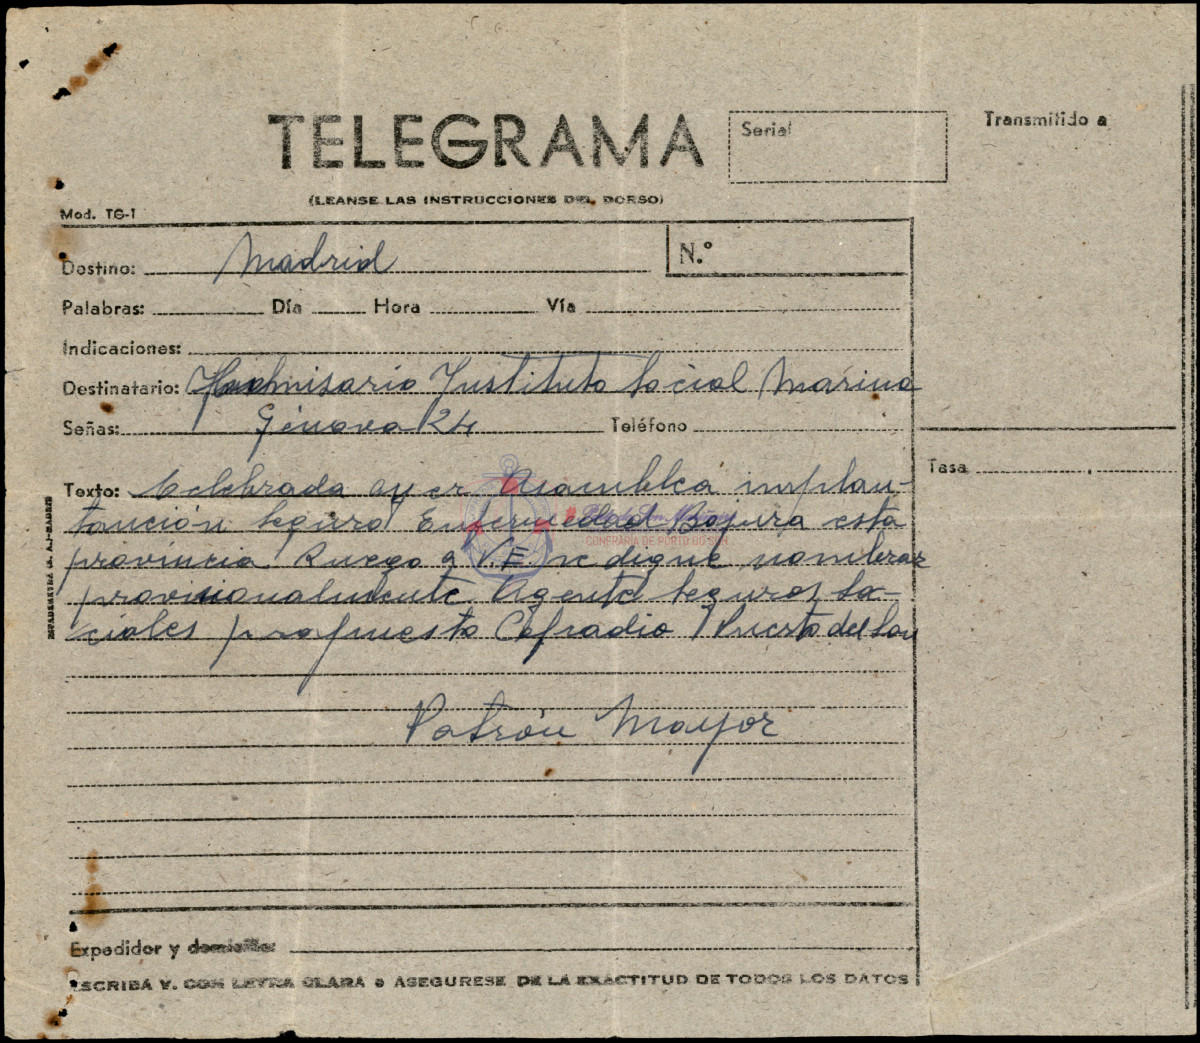 TELEGRAMA
Serial
Transmitido a
(LEANSE LAS INSTRUCCIONES DEL DORSO)
Mod. TG-1
Destino: Madrid
N.º
Palabras: Día Hora Vía
Indicaciones:
Destinatario: Comisario Instituto Social Marina
Señas: Génova 24 Teléfono
Tasa
Texto: Celebrada ayer Asamblea implan-
tación seguro Enfermedad Bajura esta
provincia Ruego a V.E. se digne nombrar
provisionalmente Agente seguros so-
ciales propuesto Cofradia Puerto del Son
CONFRARÍA DE PORTO DO SON
Patrón Mayor
Expedidor y domicilio:
ESCRIBA V. CON LETRA CLARA o ASEGURESE DE LA EXACTITUD DE TODOS LOS DATOS